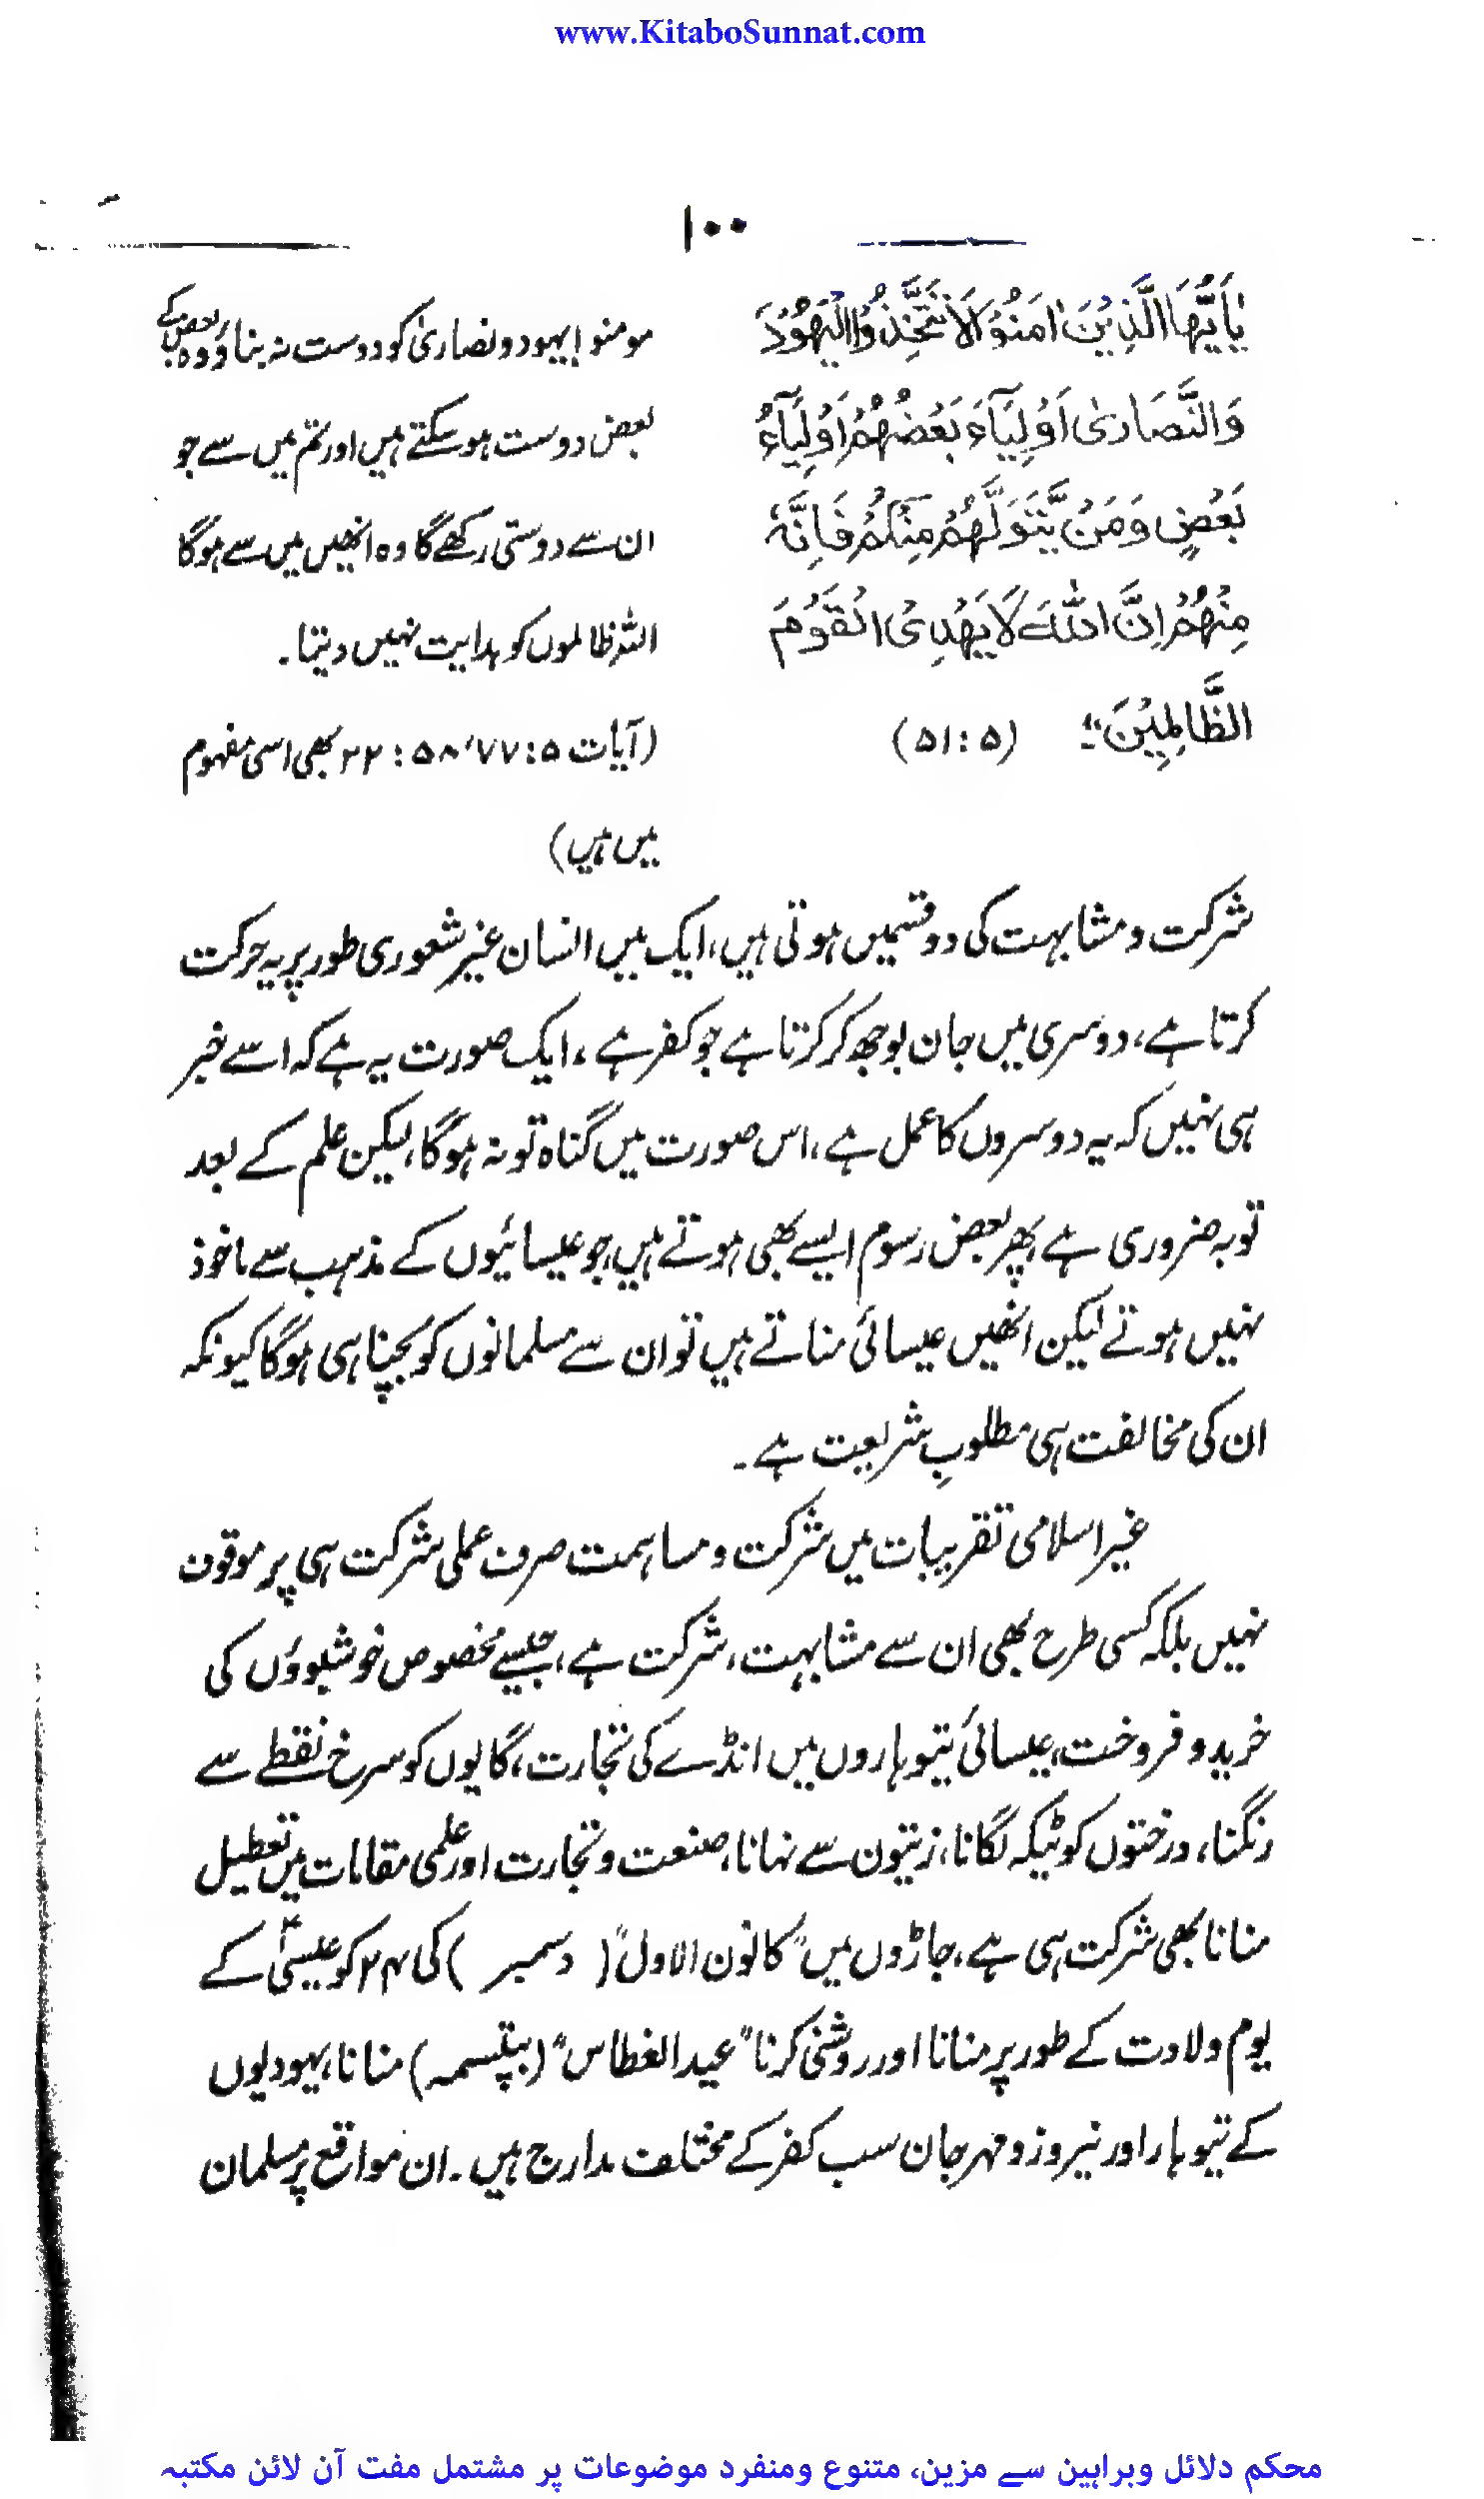 www.KitaboSunnat.com
۱۰۰
یٰاَیُّھَا الَّذِیْنَ اٰمَنُوْا لَا تَتَّخِذُوا الْیَھُوْدَ
وَالنَّصَارٰی اَوْلِیَآءَ بَعْضُھُمْ اَوْلِیَآءُ
بَعْضٍ وَمَنْ یَّتَوَلَّھُمْ مِنْکُمْ فَاِنَّہٗ
مِنْھُمْ اِنَّ اللہَ لَا یَھْدِی الْقَوْمَ
الظَّالِمِیْنَ" (۵۱:۵)
مومنو! یہود و نصاریٰ کو دوست نہ بناؤ وہ بعض کے
بعض دوست ہوسکتے ہیں اور تم میں سے جو
ان سے دوستی رکھے گا وہ انھیں میں سے ہوگا
اللہ ظالموں کو ہدایت نہیں دیتا۔
(آیات ۷۷:۵، ۵۸ : ۲۲ بھی اسی مفہوم
میں ہیں)
شرکت و مشابہت کی دو قسمیں ہوتی ہیں، ایک میں انسان غیر شعوری طور پر یہ حرکت
کرتا ہے، دوسری میں جان بوجھ کر کرتا ہے جو کفر ہے، ایک صورت یہ ہے کہ اسے خبر
ہی نہیں کہ یہ دوسروں کا عمل ہے، اس صورت میں گناہ تو نہ ہوگا، لیکن علم کے بعد
توبہ ضروری ہے، پھر بعض رسوم ایسے بھی ہوتے ہیں جو عیسائیوں کے مذہب سے ماخوذ
نہیں ہوتے لیکن انھیں عیسائی مناتے ہیں تو ان سے مسلمانوں کو بچنا ہی ہوگا کیونکہ
ان کی مخالفت ہی مطلوبِ شریعت ہے۔
غیر اسلامی تقریبات میں شرکت و مساہمت صرف عملی شرکت ہی پر موقوف
نہیں بلکہ کسی طرح بھی ان سے مشابہت، شرکت ہے، جیسے مخصوص خوشبوؤں کی
خرید و فروخت، عیسائی تیوہاروں میں انڈے کی تجارت، گایوں کو سرخ نقطے سے
رنگنا، درختوں کو ٹیکہ لگانا، زیتون سے نہانا، صنعت و تجارت اور علمی مقامات میں تعطیل
منانا بھی شرکت ہی ہے، جاڑوں میں "کانون الاول" (دسمبر) کی ۲۴ کو عیسیٰؑ کے
یوم ولادت کے طور پر منانا اور روشنی کرنا "عید الغطاس" (بپتسمہ) منانا، یہودیوں
کے تیوہار اور نیروز و مہرجان سب کفر کے مختلف مدارج ہیں۔ ان مواقع پر مسلمان
محکم دلائل وبراہین سے مزین، متنوع ومنفرد موضوعات پر مشتمل مفت آن لائن مکتبہ